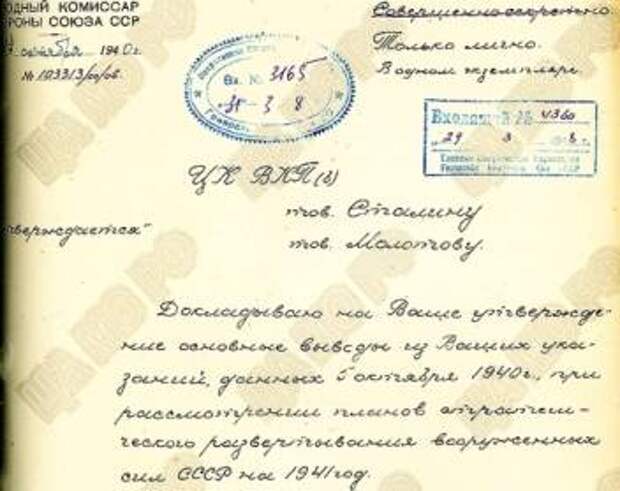 ОДНЫЙ КОМИССАР
РОНЫ СОЮЗА ССР
октября 1940г.
№ 103313/сс/ов
Совершенно секретно
Только лично.
В одном экземпляре.
Вх. № 3165
31-3 8
Входящий № 4360
29 3
ЦК ВКП(б)
тов. Сталину
тов. Молотову.
тверждается"
Докладываю на Ваше утвержде-
ние основные выводы из Ваших ука-
заний, данных 5 октября 1940г., при
рассмотрении планов стратеги-
ческого развертывания вооруженных
сил СССР на 1941 год.
ЦА МО РФ